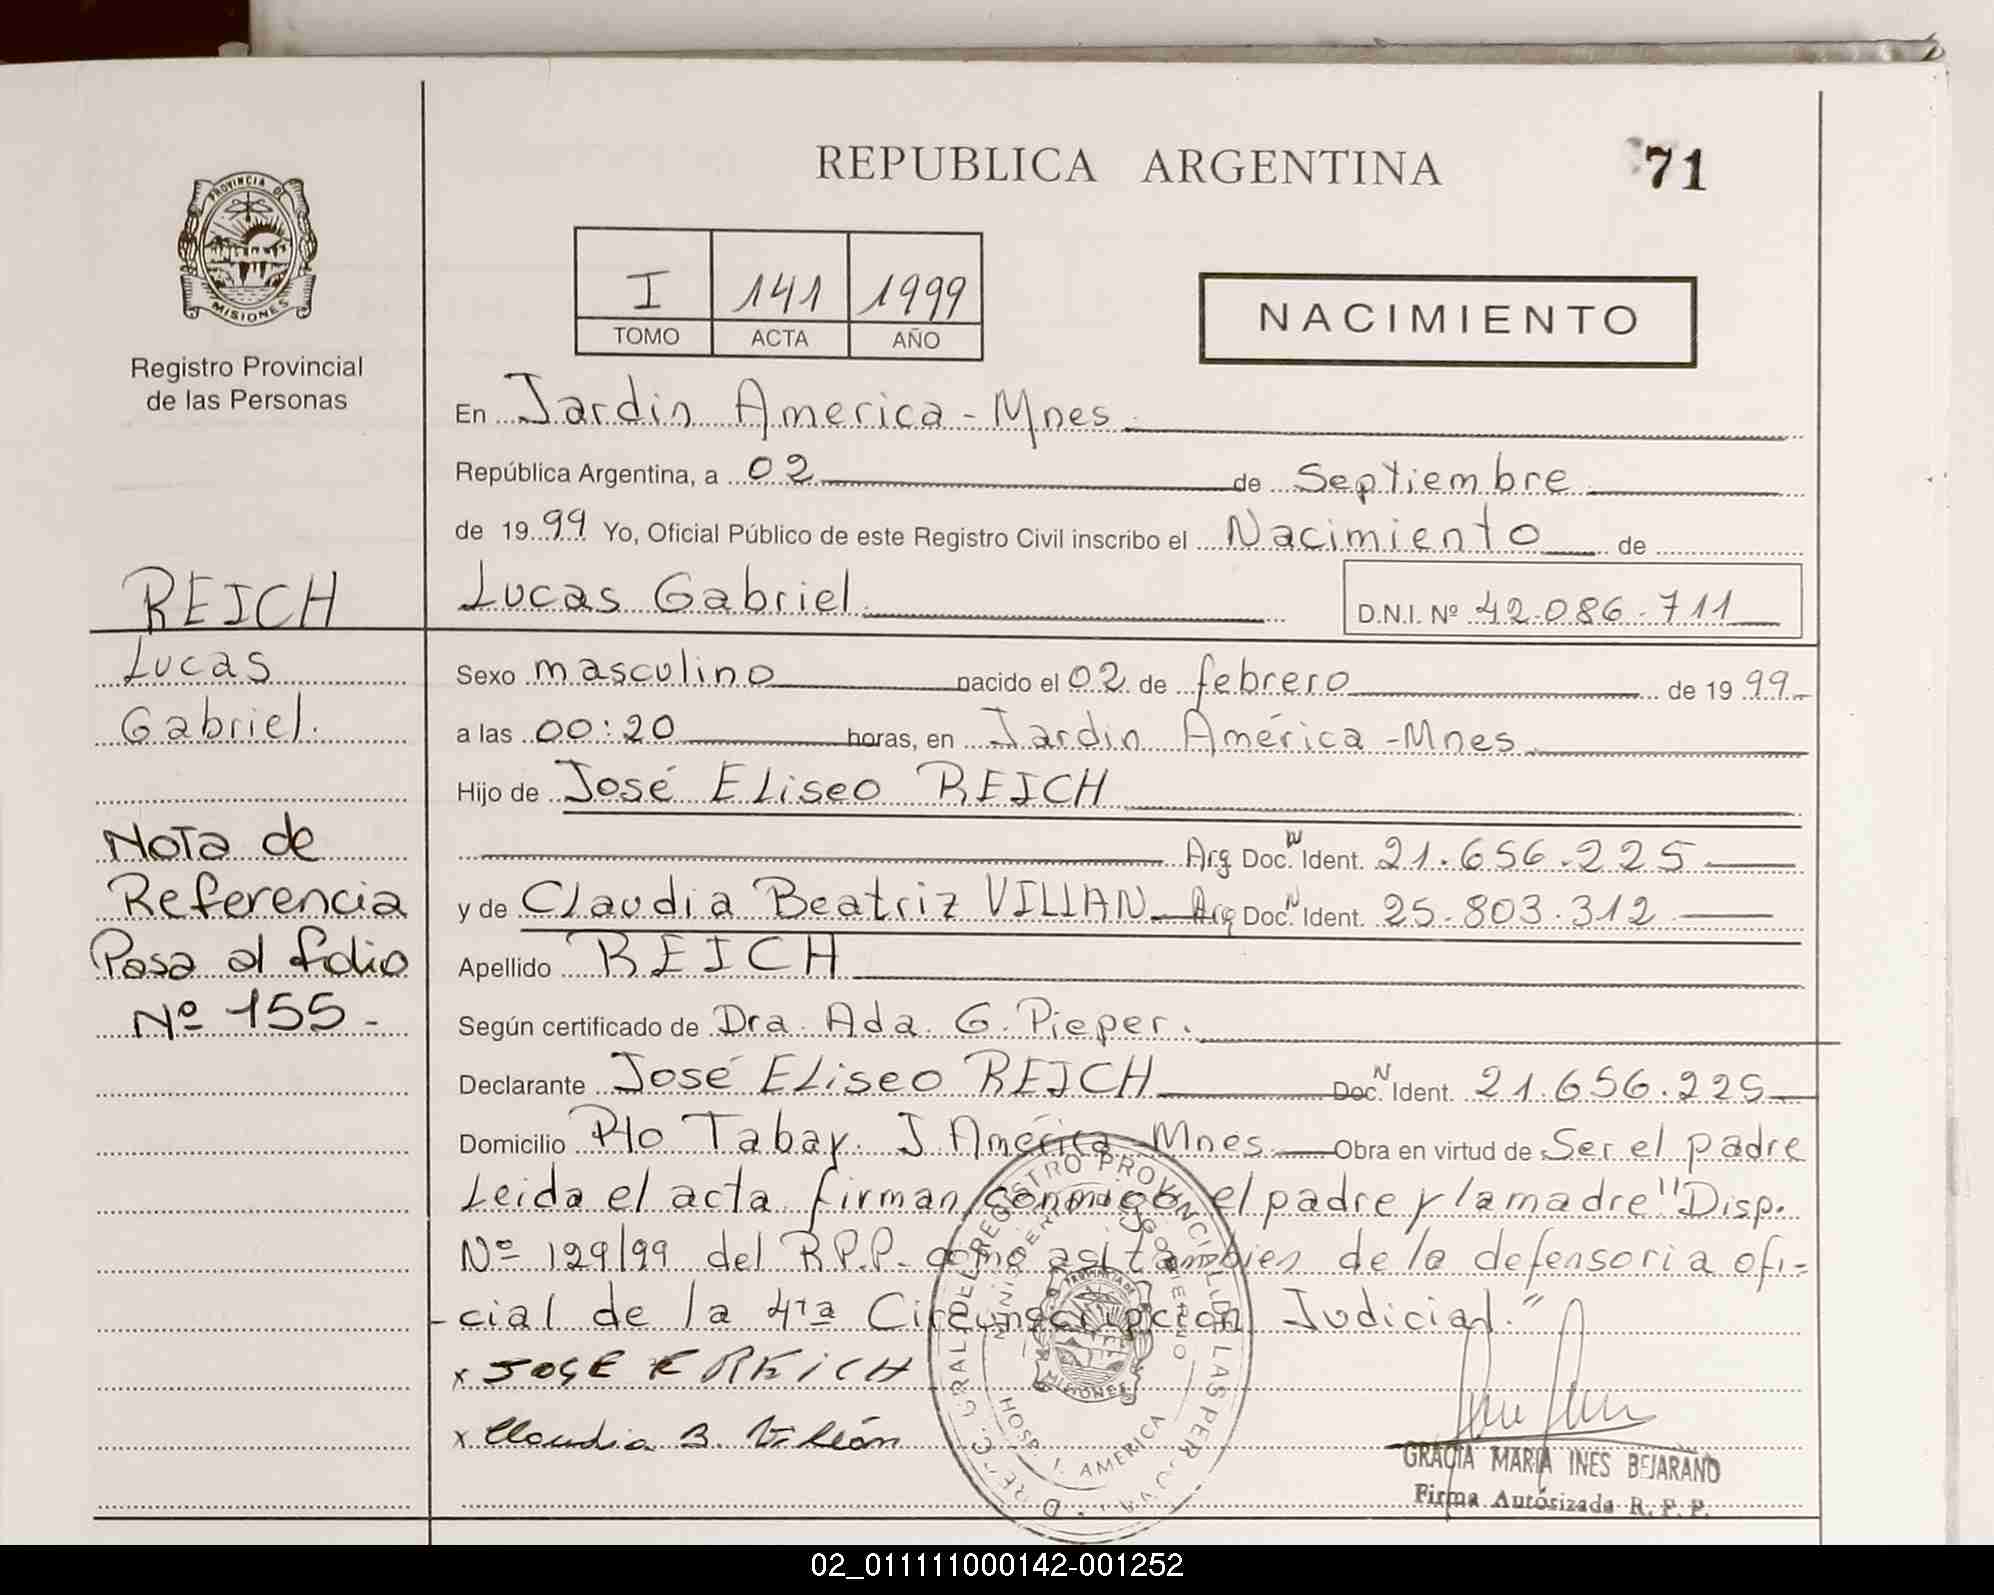 REPUBLICA ARGENTINA
71
PROVINCIA DE
MISIONES
Registro Provincial
de las Personas
I 141 1999
TOMO ACTA AÑO
NACIMIENTO
En Jardin America - Mnes.
República Argentina, a 02 de Septiembre
de 1999 Yo, Oficial Público de este Registro Civil inscribo el Nacimiento de
Lucas Gabriel D.N.I. Nº 42.086.711
REICH
Lucas
Gabriel.
Sexo masculino nacido el 02 de febrero de 1999
a las 00:20 horas, en Jardin América - Mnes
Hijo de José Eliseo REICH
Arg Doc. N Ident. 21.656.225
y de Claudia Beatriz VILLAN Arg Doc. N Ident. 25.803.312
Apellido REICH
Según certificado de Dra. Ada G. Pieper.
Declarante José Eliseo REICH Doc. N Ident. 21.656.225
Domicilio Pto Tabay. J. América Mnes Obra en virtud de Ser el padre
Leida el acta firman conmigo el padre y la madre "Disp.
Nº 129/99 del R.P.P. como asi tambien de la defensoria ofi-
-cial de la 4ta Circunscripcion Judicial."
x JOSE E REICH
x Claudia B. Villán
Nota de
Referencia
Pasa al folio
Nº 155 -
REGISTRO PROVINCIAL DE LAS PER
GOBIERNO
HOSP. J. AMERICA
MISIONES
GRACIA MARIA INES BEJARANO
Firma Autorizada R. P. P.
02_011111000142-001252